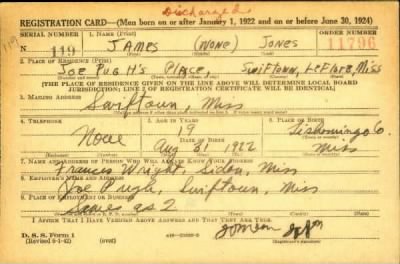 Discharged
REGISTRATION CARD—(Men born on or after January 1, 1922 and on or before June 30, 1924)
SERIAL NUMBER 1. NAME (Print) ORDER NUMBER
N 119 JAMES (NONE) JONES 11796
2. PLACE OF RESIDENCE (Print)
JOE PUGH'S PLACE, SWIFTOWN, LEFLORE, MISS
[THE PLACE OF RESIDENCE GIVEN ON THE LINE ABOVE WILL DETERMINE LOCAL BOARD
JURISDICTION; LINE 2 OF REGISTRATION CERTIFICATE WILL BE IDENTICAL]
3. MAILING ADDRESS
Swiftown, Miss
4. TELEPHONE 5. AGE IN YEARS 6. PLACE OF BIRTH
19 Tishomingo Co.
DATE OF BIRTH
None Aug 31 1922 Miss
7. NAME AND ADDRESS OF PERSON WHO WILL ALWAYS KNOW YOUR ADDRESS
Francis Wright, Sidon, Miss
8. EMPLOYER'S NAME AND ADDRESS
Joe Pugh, Swiftown, Miss
9. PLACE OF EMPLOYMENT OR BUSINESS
Same as 2
I AFFIRM THAT I HAVE VERIFIED ABOVE ANSWERS AND THAT THEY ARE TRUE.
D. S. S. Form 1
(Revised 6-1-42) (over) (Registrant's signature)